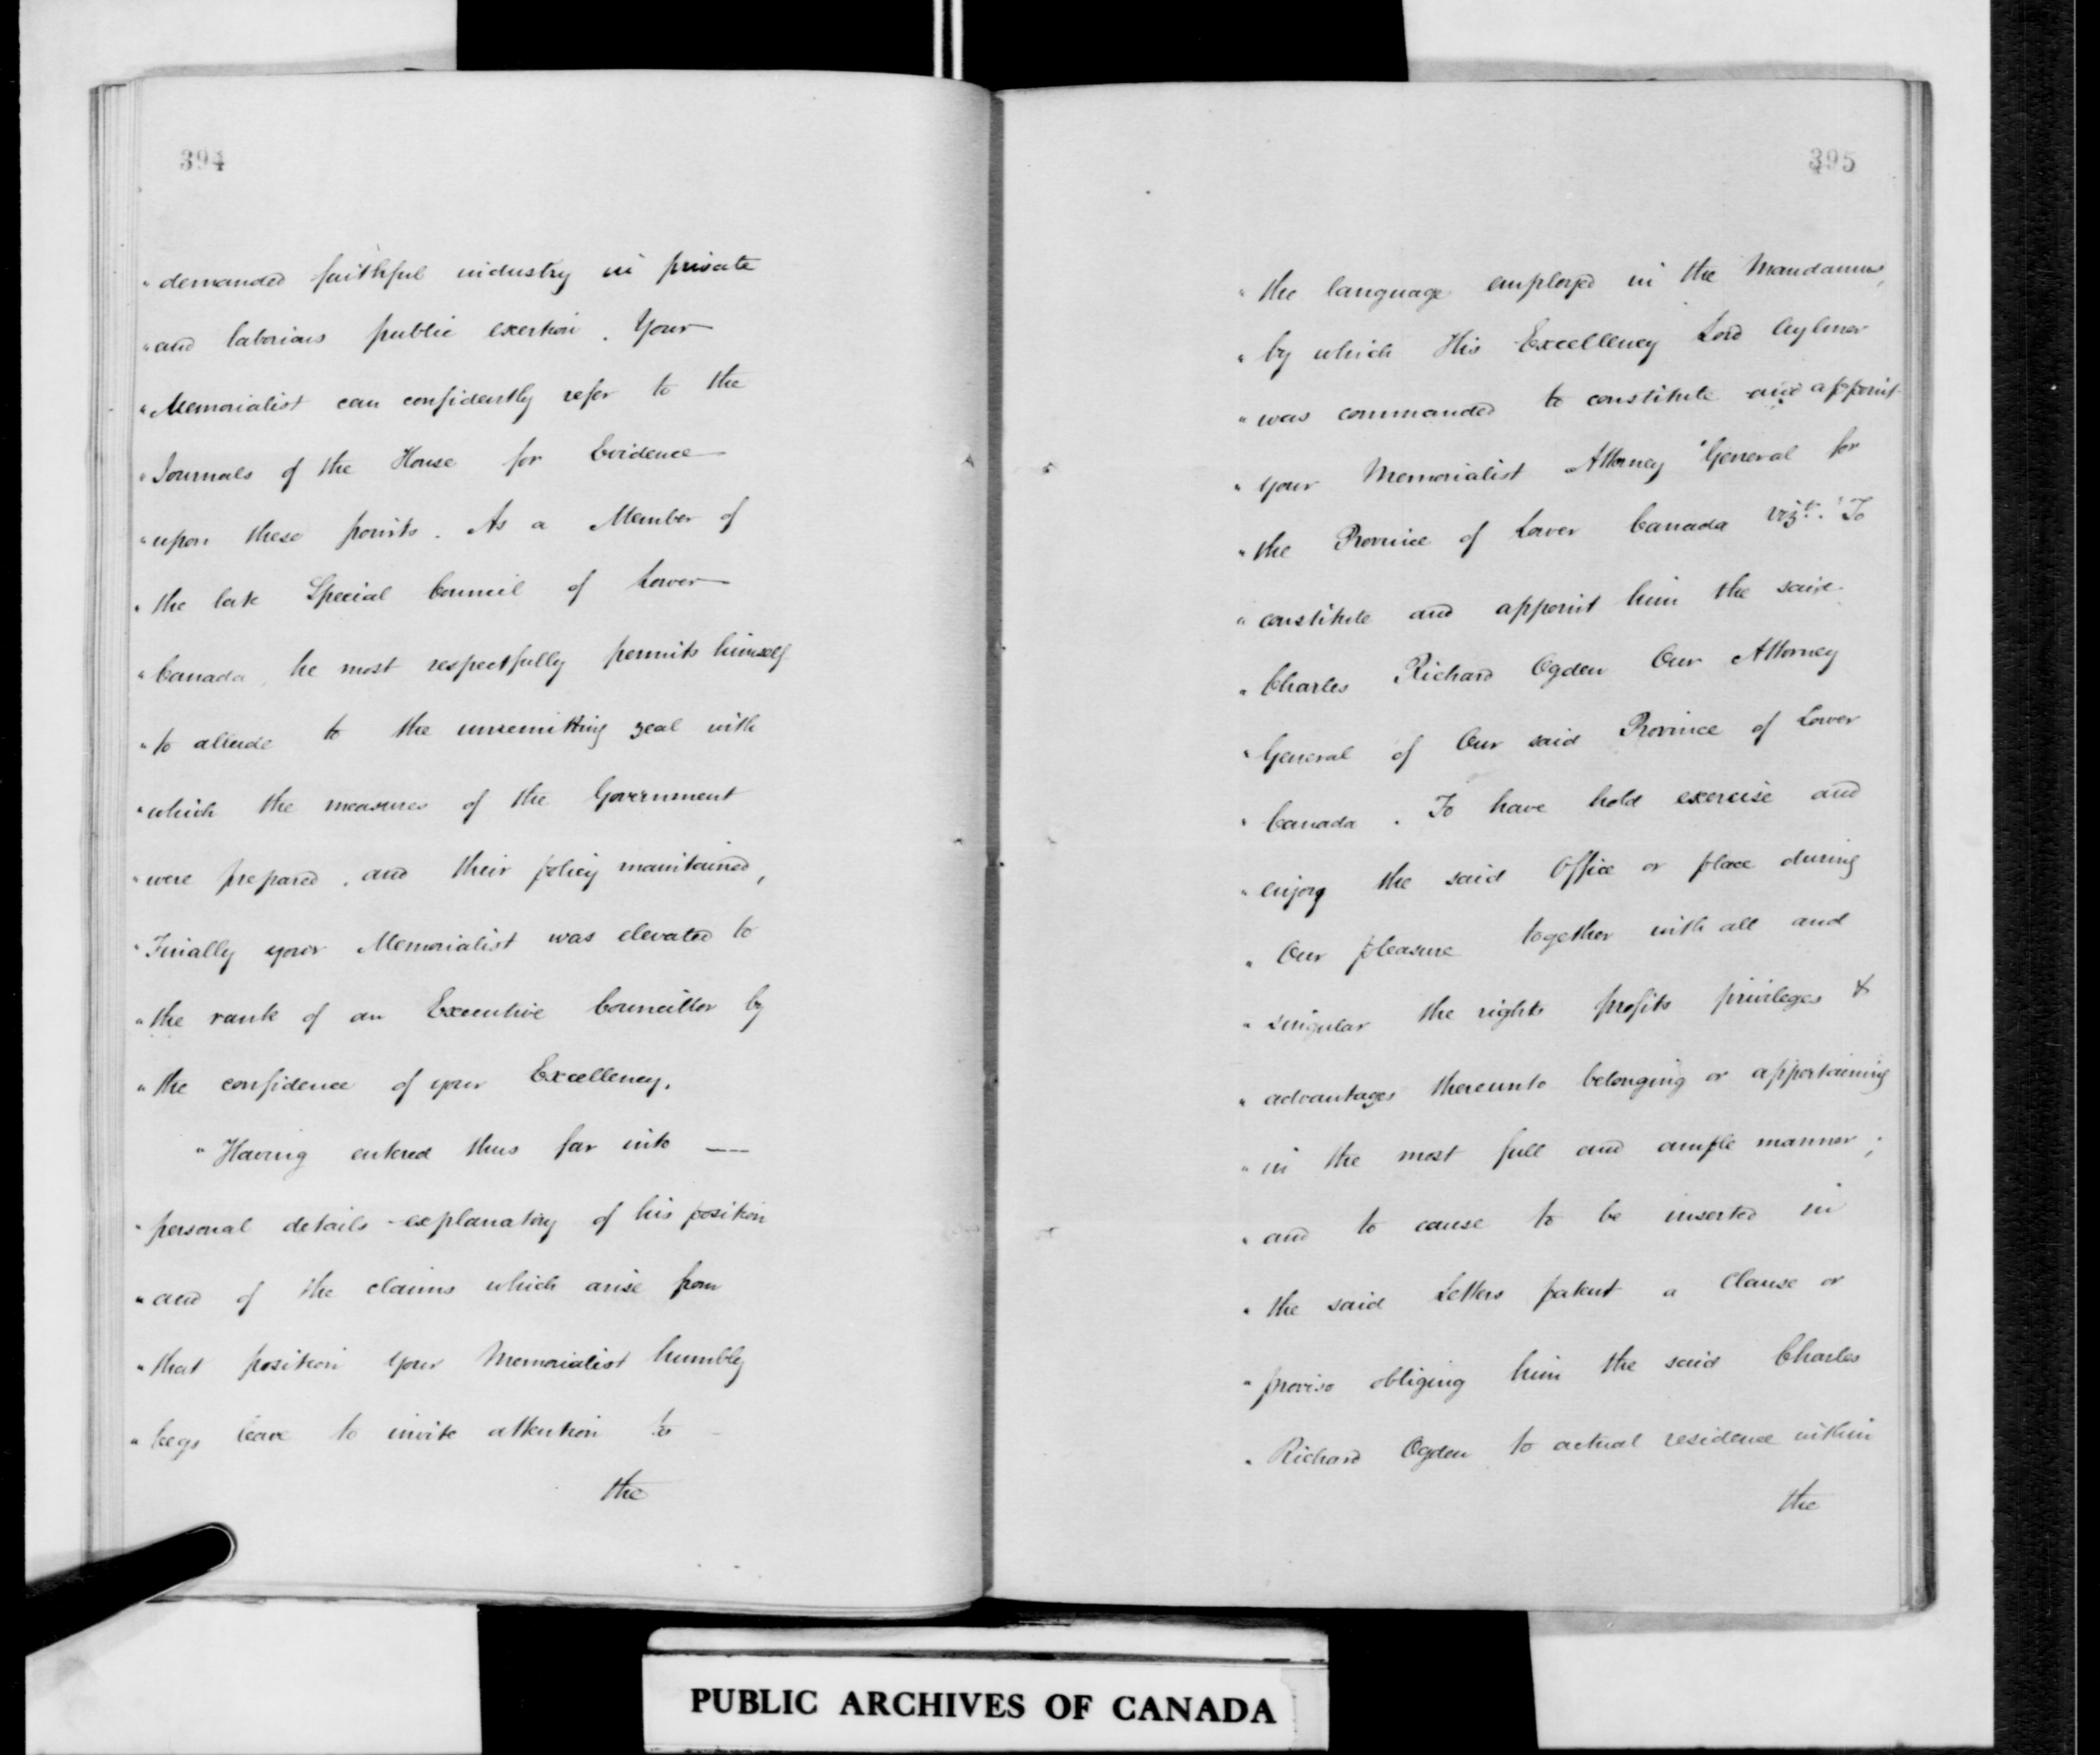 394
" demanded faithful industry in private
" and laborious public exertion. Your
" Memorialist can confidently refer to the
" Journals of the House for Evidence
" upon these points. As a Member of
" the late Special Council of Lower
" Canada, he most respectfully permits himself
" to allude to the unremitting zeal with
" which the measures of the Government
" were prepared, and their policy maintained,
" Finally your Memorialist was elevated to
" the rank of an Executive Councillor by
" the confidence of your Excellency.
" Having entered thus far into —
" personal details explanatory of his position
" and of the claims which arise from
" that position your Memorialist humbly
" begs leave to invite attention to
the
395
" the language employed in the Mandamus,
" by which His Excellency Lord Aylmer
" was commanded to constitute and appoint
" your Memorialist Attorney General for
" the Province of Lower Canada vizt. "To
" constitute and appoint him the said
" Charles Richard Ogden Our Attorney
" General of Our said Province of Lower
" Canada. To have hold exercise and
" enjoy the said Office or place during
" Our pleasure together with all and
" singular the rights profits privileges &
" advantages thereunto belonging or appertaining
" in the most full and ample manner;
" and to cause to be inserted in
" the said Letters patent a Clause or
" proviso obliging him the said Charles
" Richard Ogden to actual residence within
the
PUBLIC ARCHIVES OF CANADA